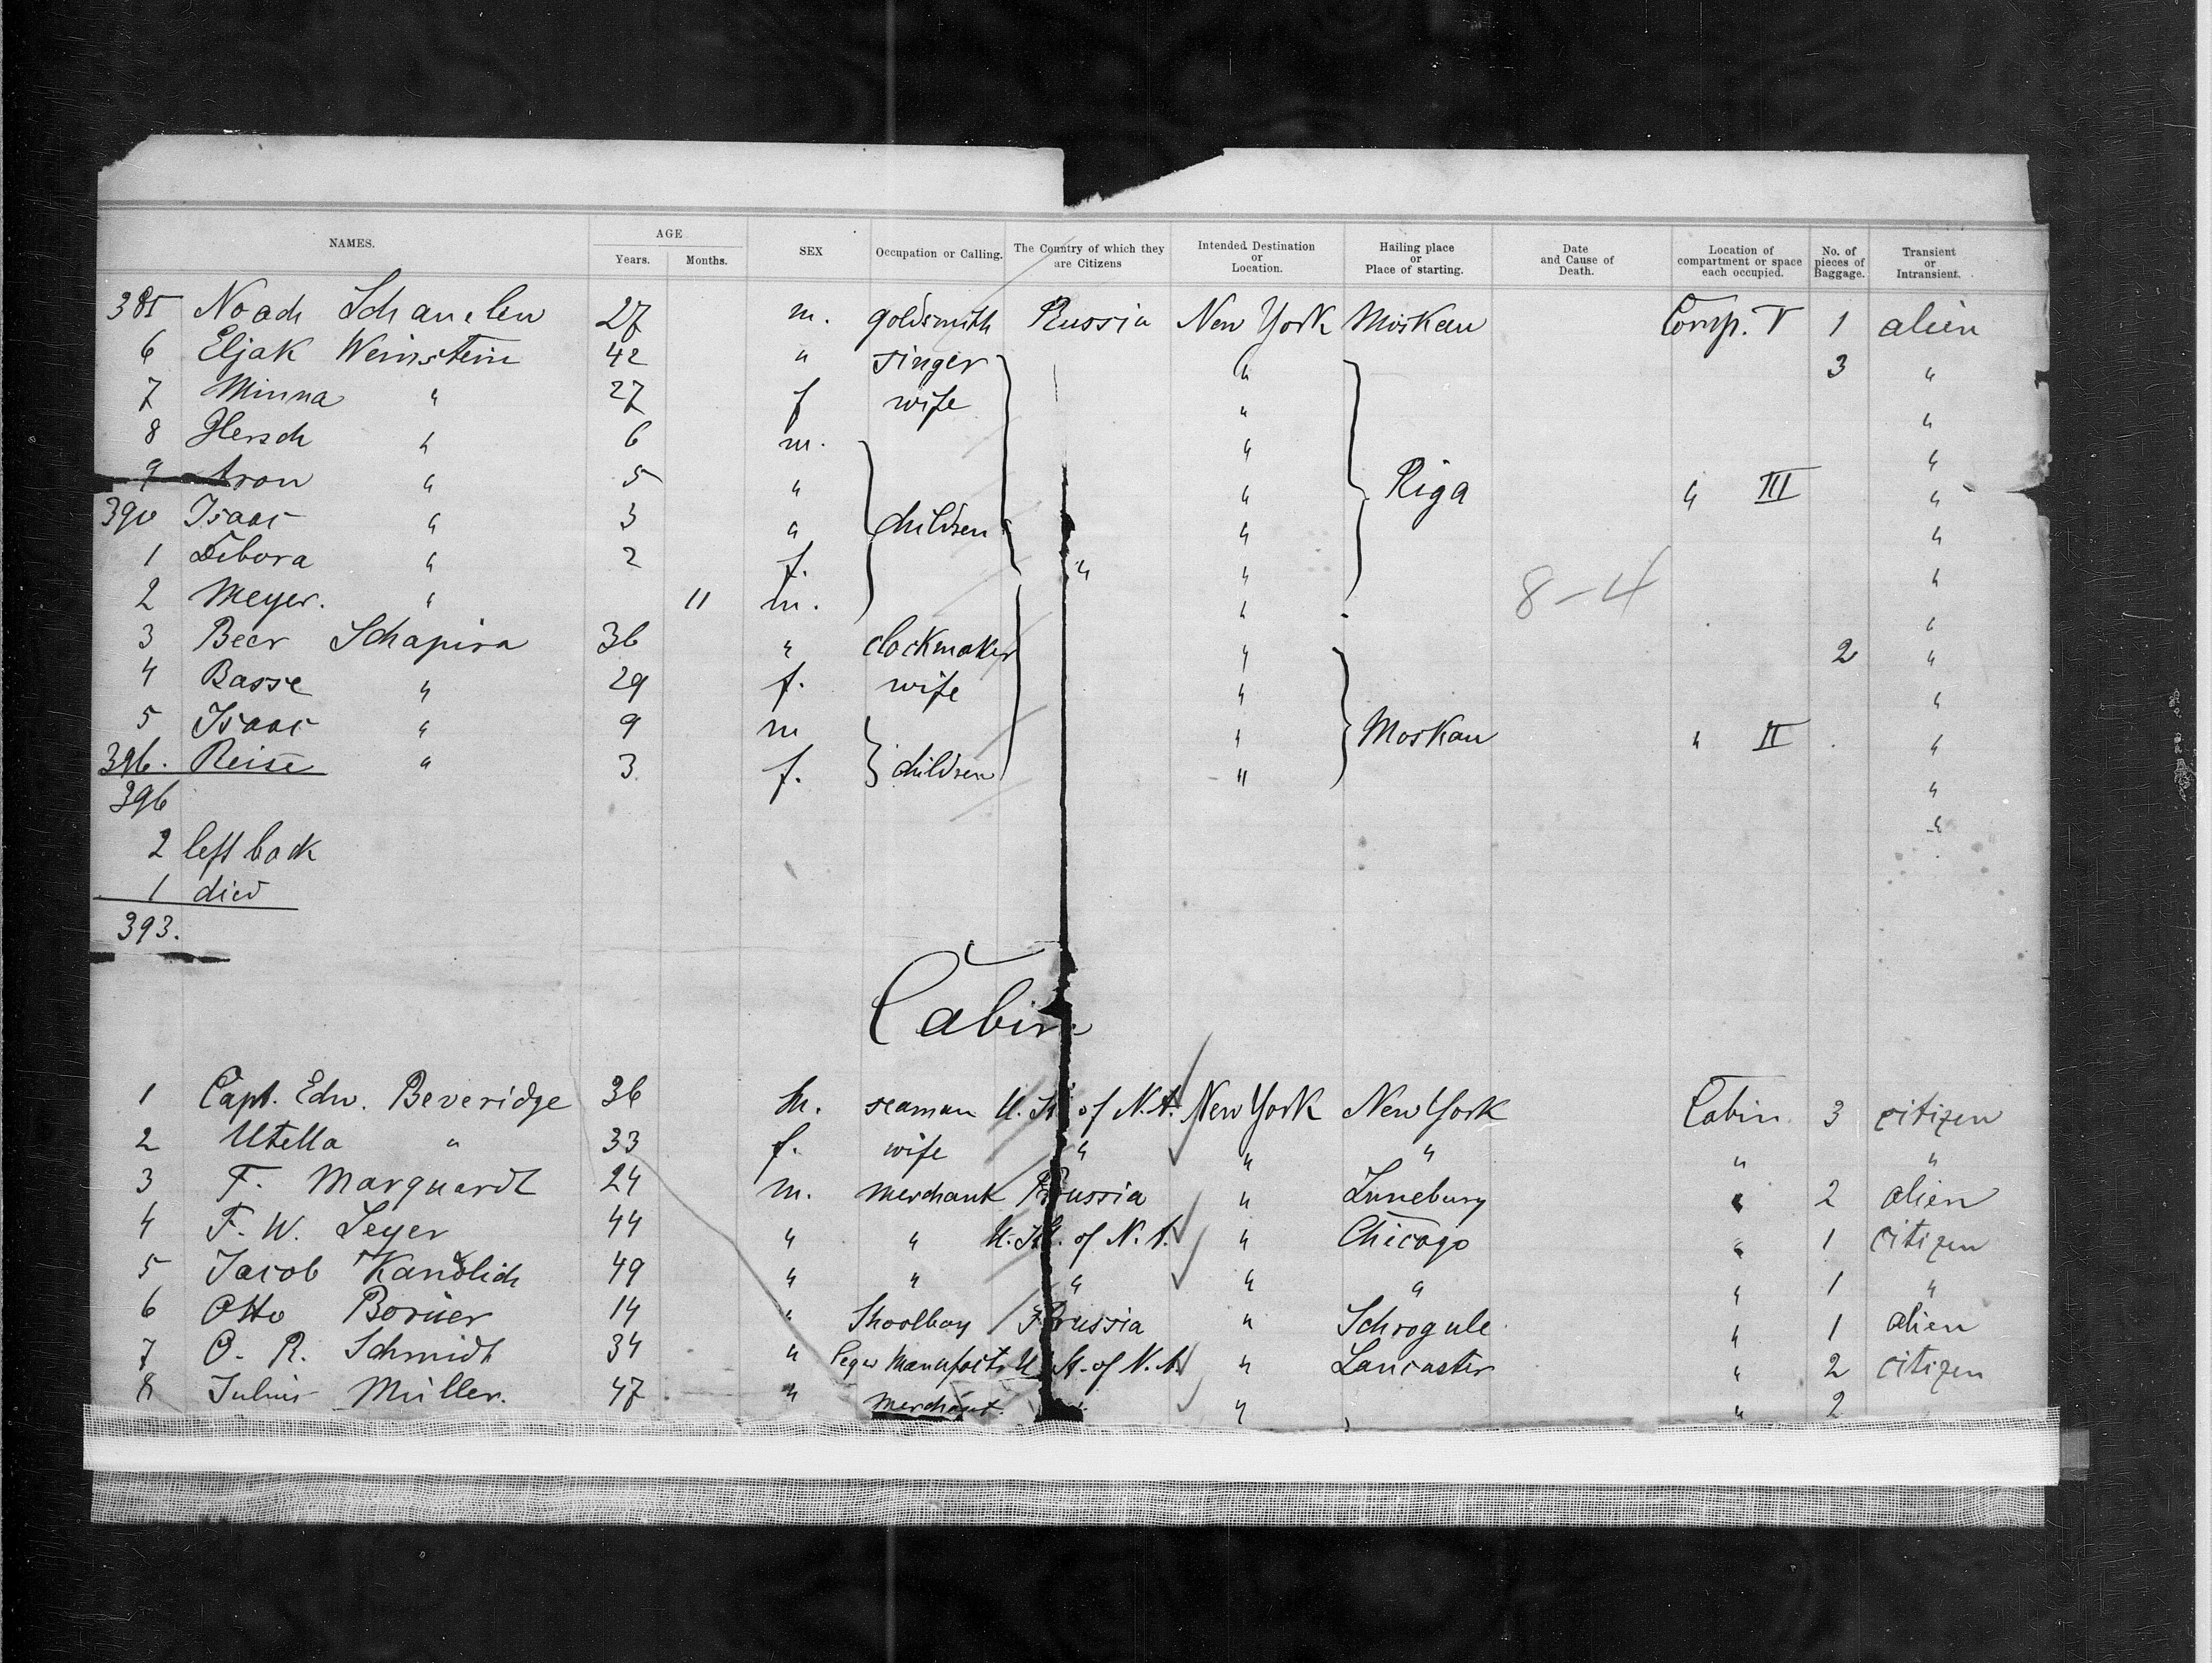 NAMES. AGE Years. Months. SEX Occupation or Calling. The Country of which they are Citizens Intended Destination or Location. Hailing place or Place of starting. Date and Cause of Death. Location of compartment or space each occupied. No. of pieces of Baggage. Transient or Intransient.
385 Noach 27 m. goldsmith Russia New York Moskau Comp. V 1 alien
6 Eljak Weinstein 42 " singer " 3 "
7 Minna " 27 f wife " "
8 Hersch " 6 m. " "
9 Aron " 5 " " Riga " III "
390 Isaac " 3 " children " "
1 Debora " 2 f. " " "
2 Meyer. " 11 m. " 8-4 "
3 Beer Schapira 36 " clockmaker " 2 "
4 Basse " 29 f. wife " "
5 Isaac " 9 m " Moskau " II "
396. Reise " 3 f. children " "
396 "
2 left back
1 died
393.
Cabin
1 Capt. Edw. Beveridge 36 m. seaman U. St. of N. A. New York New York Cabin 3 citizen
2 Utella " 33 f. wife " " " " "
3 F. Marquardt 24 m. merchant Prussia " Lüneburg " 2 alien
4 F. W. Leyer 44 " " U. St. of N. A. " Chicago " 1 citizen
5 Jacob 49 " " " " " " 1 "
6 Otto 14 " Shoolboy Prussia " " 1 alien
7 O. R. Schmidt 34 " U. St. of N. A. " Lancaster " 2 citizen
8 Julius Müller. 47 " merchant. " " " 2